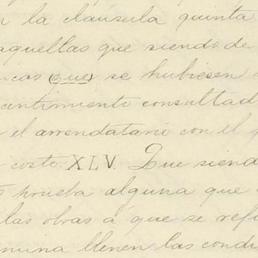 n la cláusula quinta
aquellas que siendo de
icas (que) se hubiesen
entimiento consultad
el arrendatario con el
costo XLV. Que siend
prueba alguna que
las obras á que se refi
muna llenen las cond